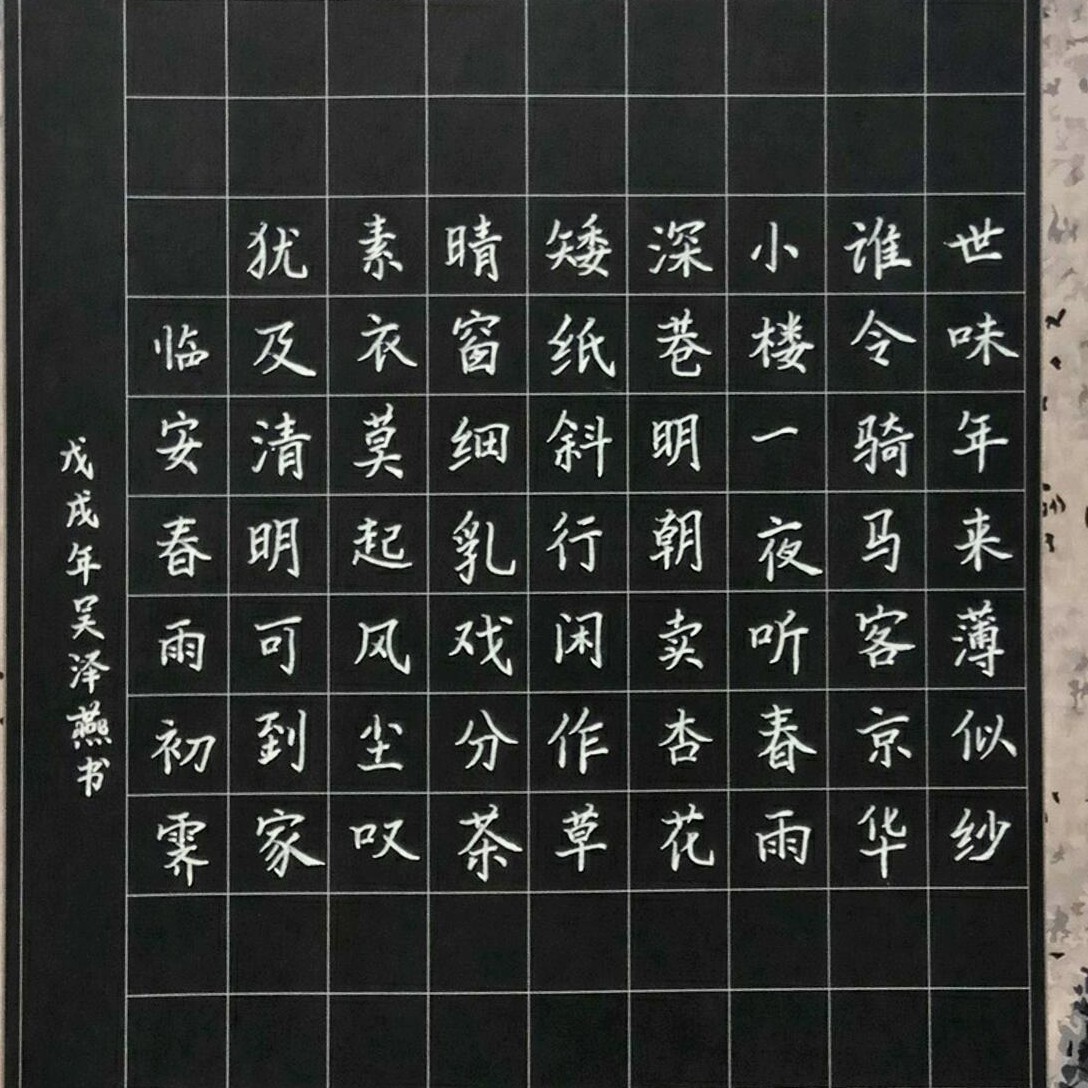 世味年来薄似纱
谁令骑马客京华
小楼一夜听春雨
深巷明朝卖杏花
矮纸斜行闲作草
晴窗细乳戏分茶
素衣莫起风尘叹
犹及清明可到家
临安春雨初霁
戊戌年吴泽燕书